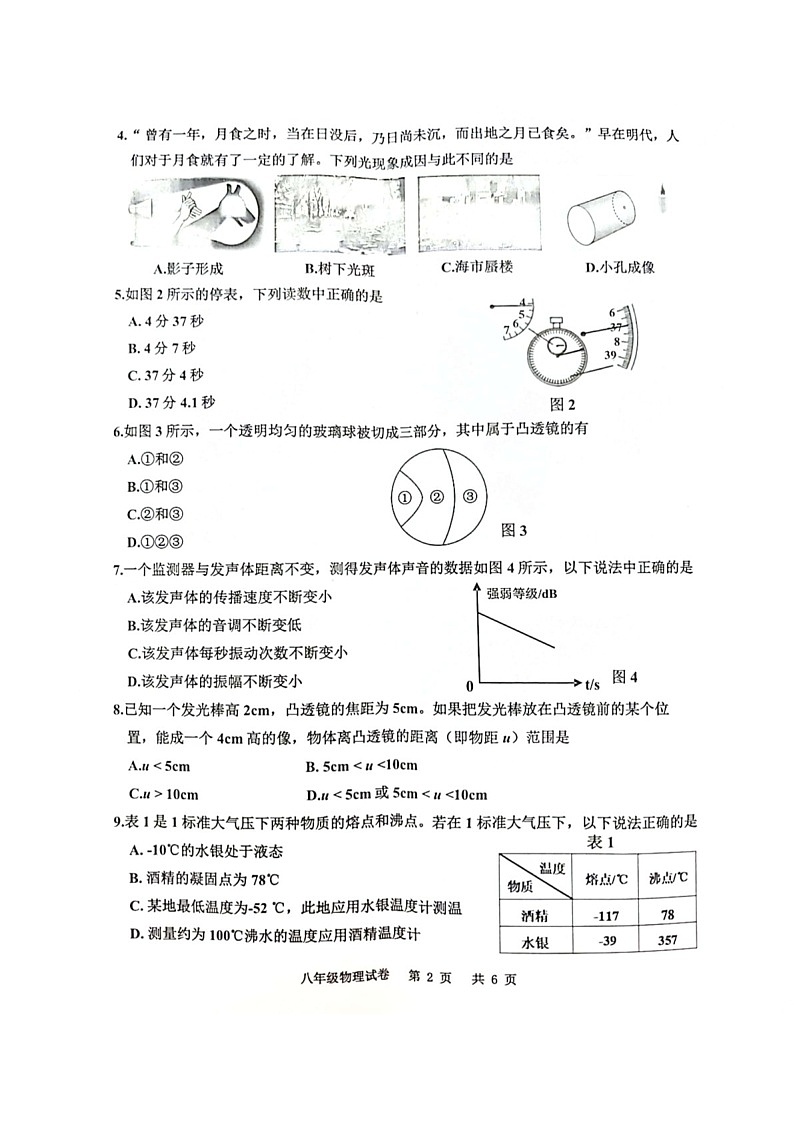 4.“曾有一年，月食之时，当在日没后，乃日尚未沉，而出地之月已食矣。”早在明代，人
们对于月食就有了一定的了解。下列光现象成因与此不同的是
A.影子形成 B.树下光斑 C.海市蜃楼 D.小孔成像
5.如图2所示的停表，下列读数中正确的是
A. 4分37秒
B. 4分7秒
C. 37分4秒
D. 37分4.1秒
4
5
6
7
6
37
8
39
图2
6.如图3所示，一个透明均匀的玻璃球被切成三部分，其中属于凸透镜的有
A.①和②
B.①和③
C.②和③
D.①②③
① ② ③
图3
7.一个监测器与发声体距离不变，测得发声体声音的数据如图4所示，以下说法中正确的是
A.该发声体的传播速度不断变小
B.该发声体的音调不断变低
C.该发声体每秒振动次数不断变小
D.该发声体的振幅不断变小
强弱等级/dB
0 t/s 图4
8.已知一个发光棒高2cm，凸透镜的焦距为5cm。如果把发光棒放在凸透镜前的某个位
置，能成一个4cm高的像，物体离凸透镜的距离（即物距u）范围是
A.u < 5cm B. 5cm < u <10cm
C.u > 10cm D.u < 5cm或5cm < u <10cm
9.表1是1标准大气压下两种物质的熔点和沸点。若在1标准大气压下，以下说法正确的是
A. -10℃的水银处于液态
B. 酒精的凝固点为78℃
C. 某地最低温度为-52 ℃，此地应用水银温度计测温
D. 测量约为100℃沸水的温度应用酒精温度计
表1
温度 物质 熔点/℃ 沸点/℃
酒精 -117 78
水银 -39 357
八年级物理试卷 第 2 页 共 6 页